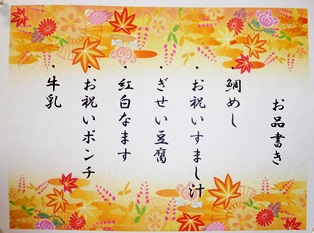 お品書き
・鯛めし
・お祝いすまし汁
・ぎせい豆腐
紅白なます
お祝いポンチ
・牛乳